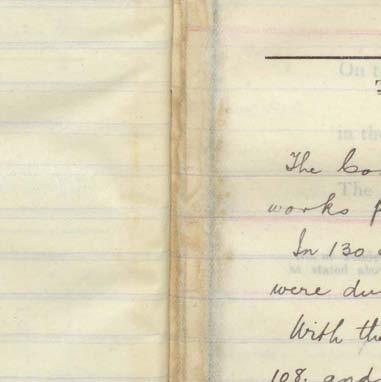 On t
in the
The Co
The
works p
In 130
as stated abo
were du
With the
108. and